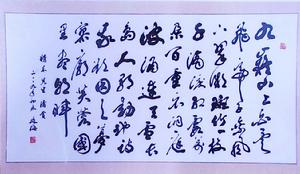 九嶷山上白雲
飛帝子乘風
下翠微斑竹一枝
千滴淚紅霞萬
朵百重衣洞庭
波涌連天雪長
島人歌動地詩
我欲因之夢
寥廓芙蓉國
里盡朝暉